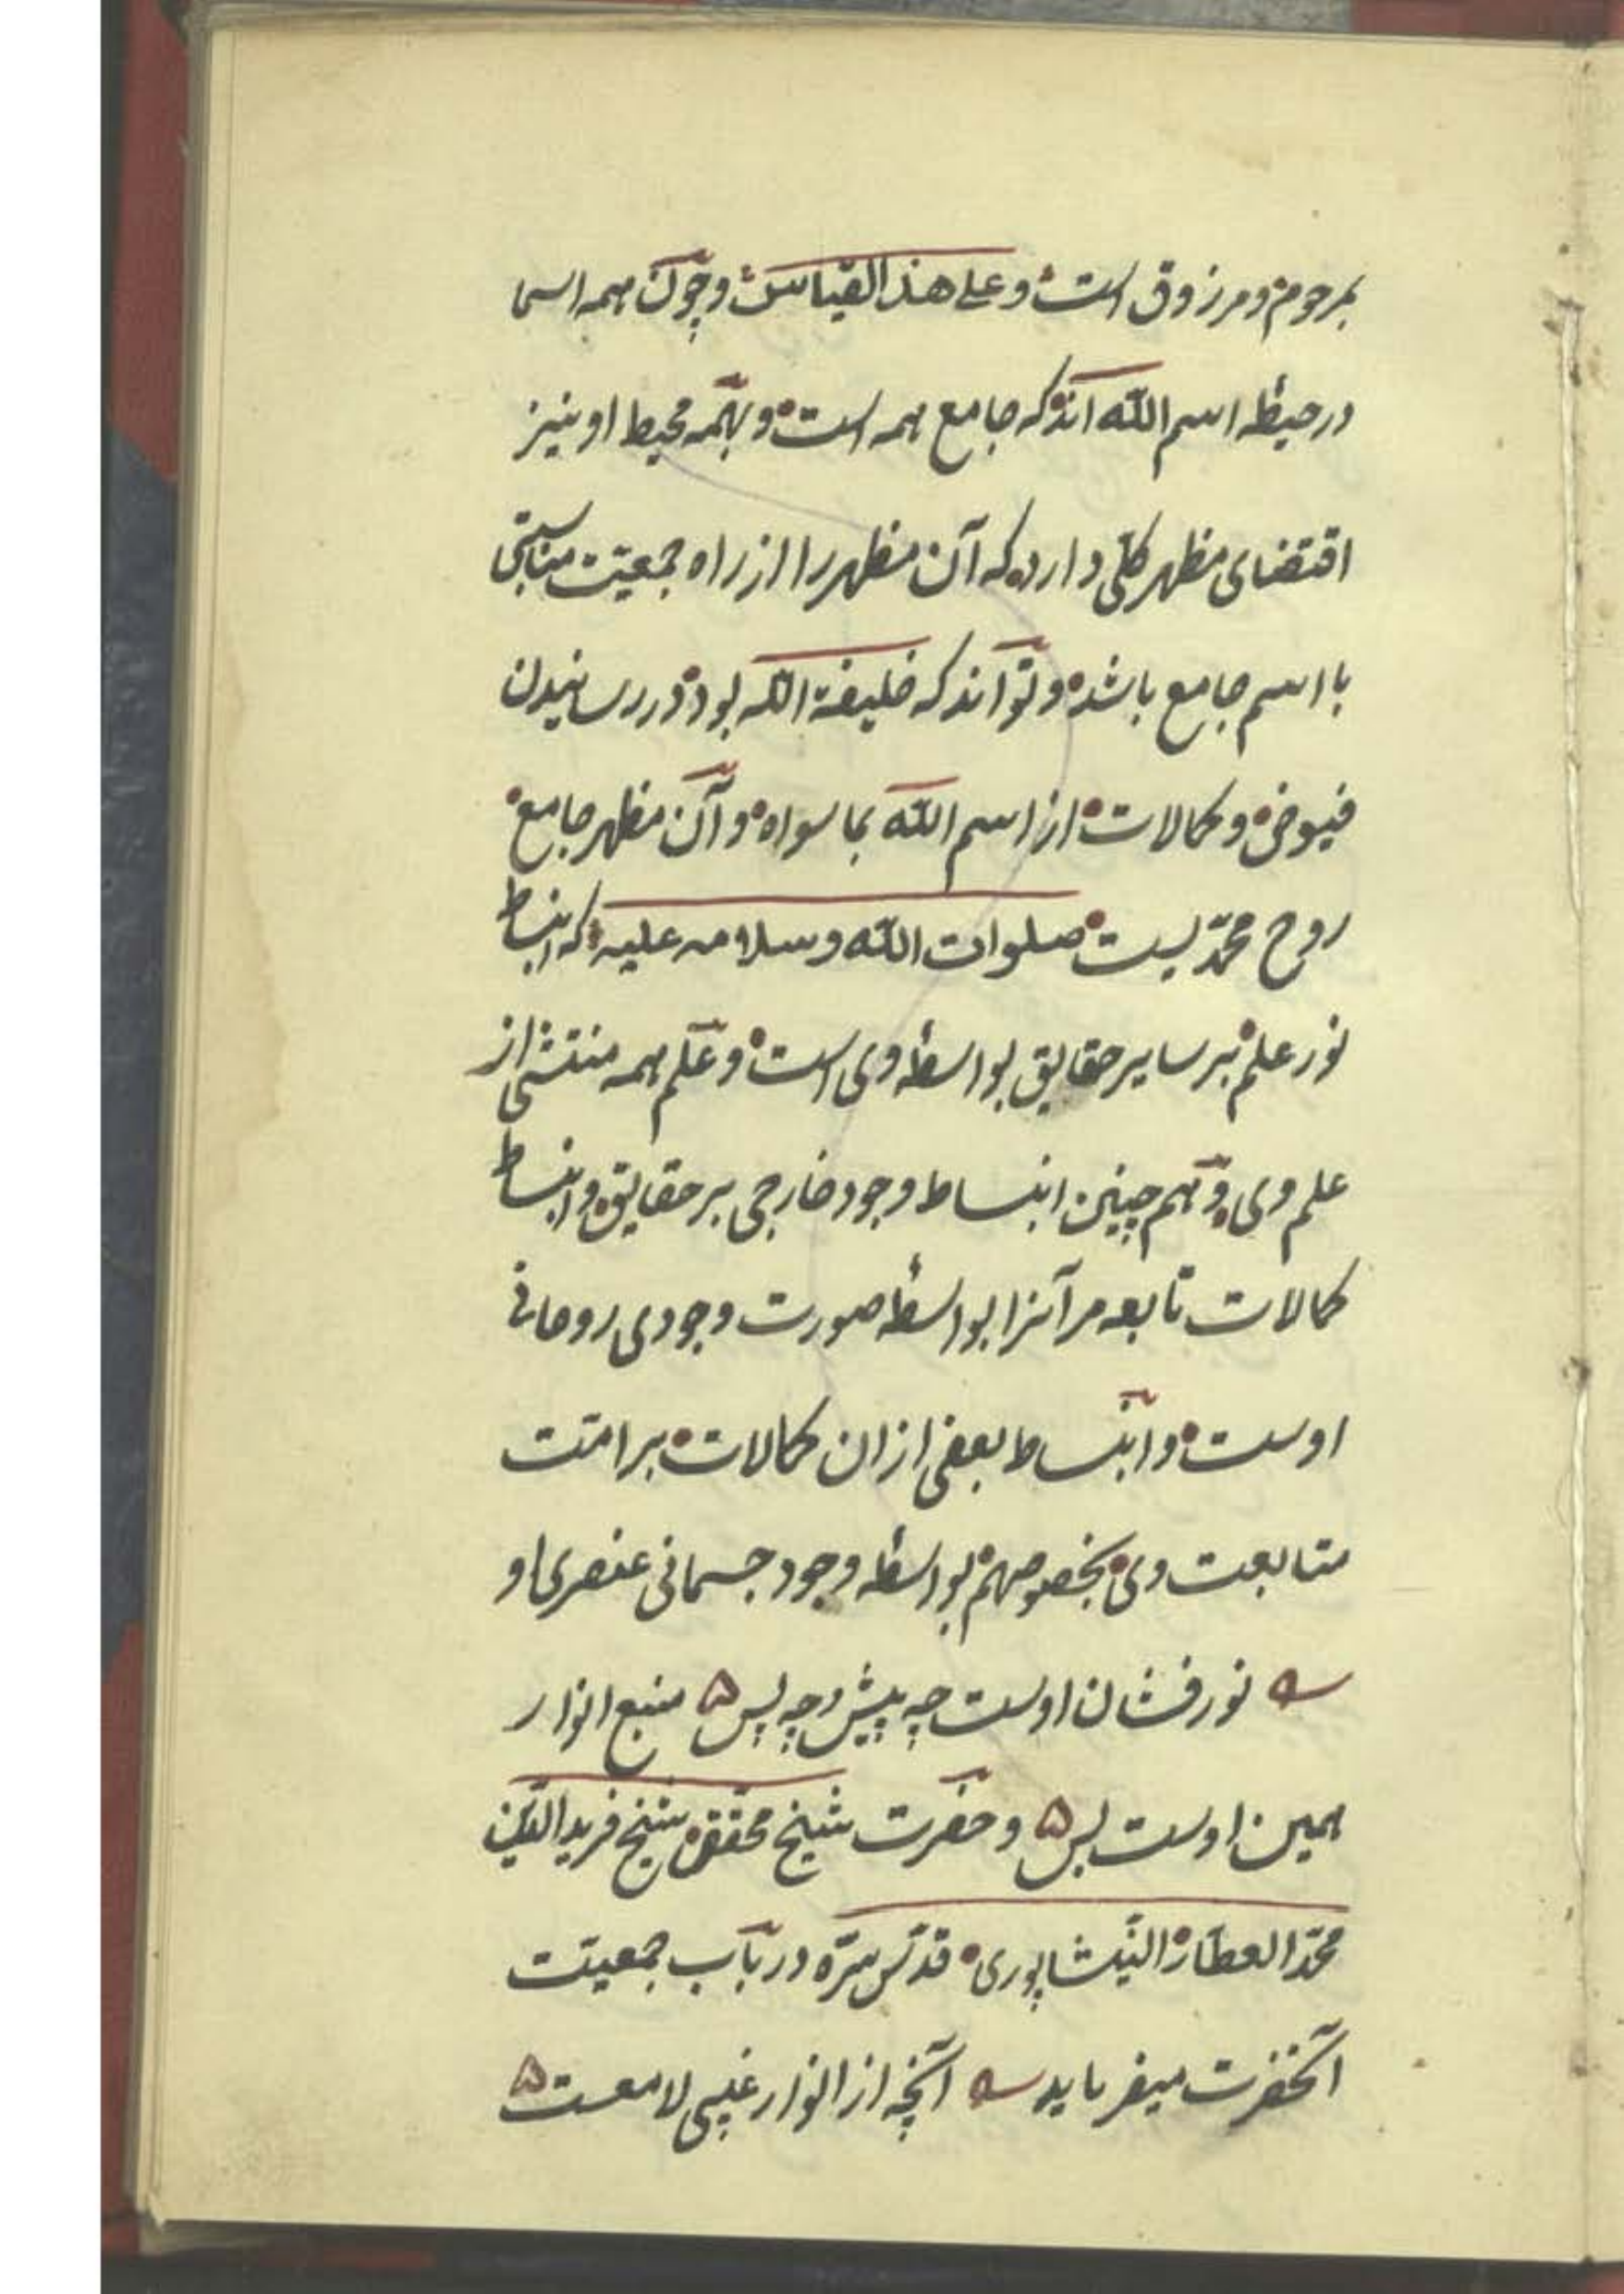 بمرحوم و مرزوق است و علی هذا القیاس و چون همه اسما
در حیطه اسم الله اند که جامع همه است و بهمه محیط او نیز
اقتضای مظهر کلّی دارد که آن مظهر را از راه جمعیّت مناسبتی
با اسم جامع باشد و تواند که خلیفة الله بود در رسانیدن
فیوض و کمالات از اسم الله بما سواه و آن مظهر جامع
روح محمّدیست صلوات الله و سلامه علیه که انبساط
نور علم بر سایر حقایق بواسطهٔ وی است و علم همه منتشی از
علم وی و هم چنین انبساط وجود خارجی بر حقایق و انبساط
کمالات تابعه مر آنرا بواسطهٔ صورت وجودی روحانی
اوست و انبساط بعضی از ان کمالات بر امّت
متابعت وی بخصوصهم بواسطهٔ وجود جسمانی عنصری او
نور فشان اوست چه پیش و چه پس ۵ منبع انوار
همین اوست بس ۵ و حضرت شیخ محقق شیخ فرید الدّین
محمّد العطّار النّیشاپوری قدّس سرّه در باب جمعیّت
آنحضرت میفرماید آنچه از انوار غیبی لامعست ۵